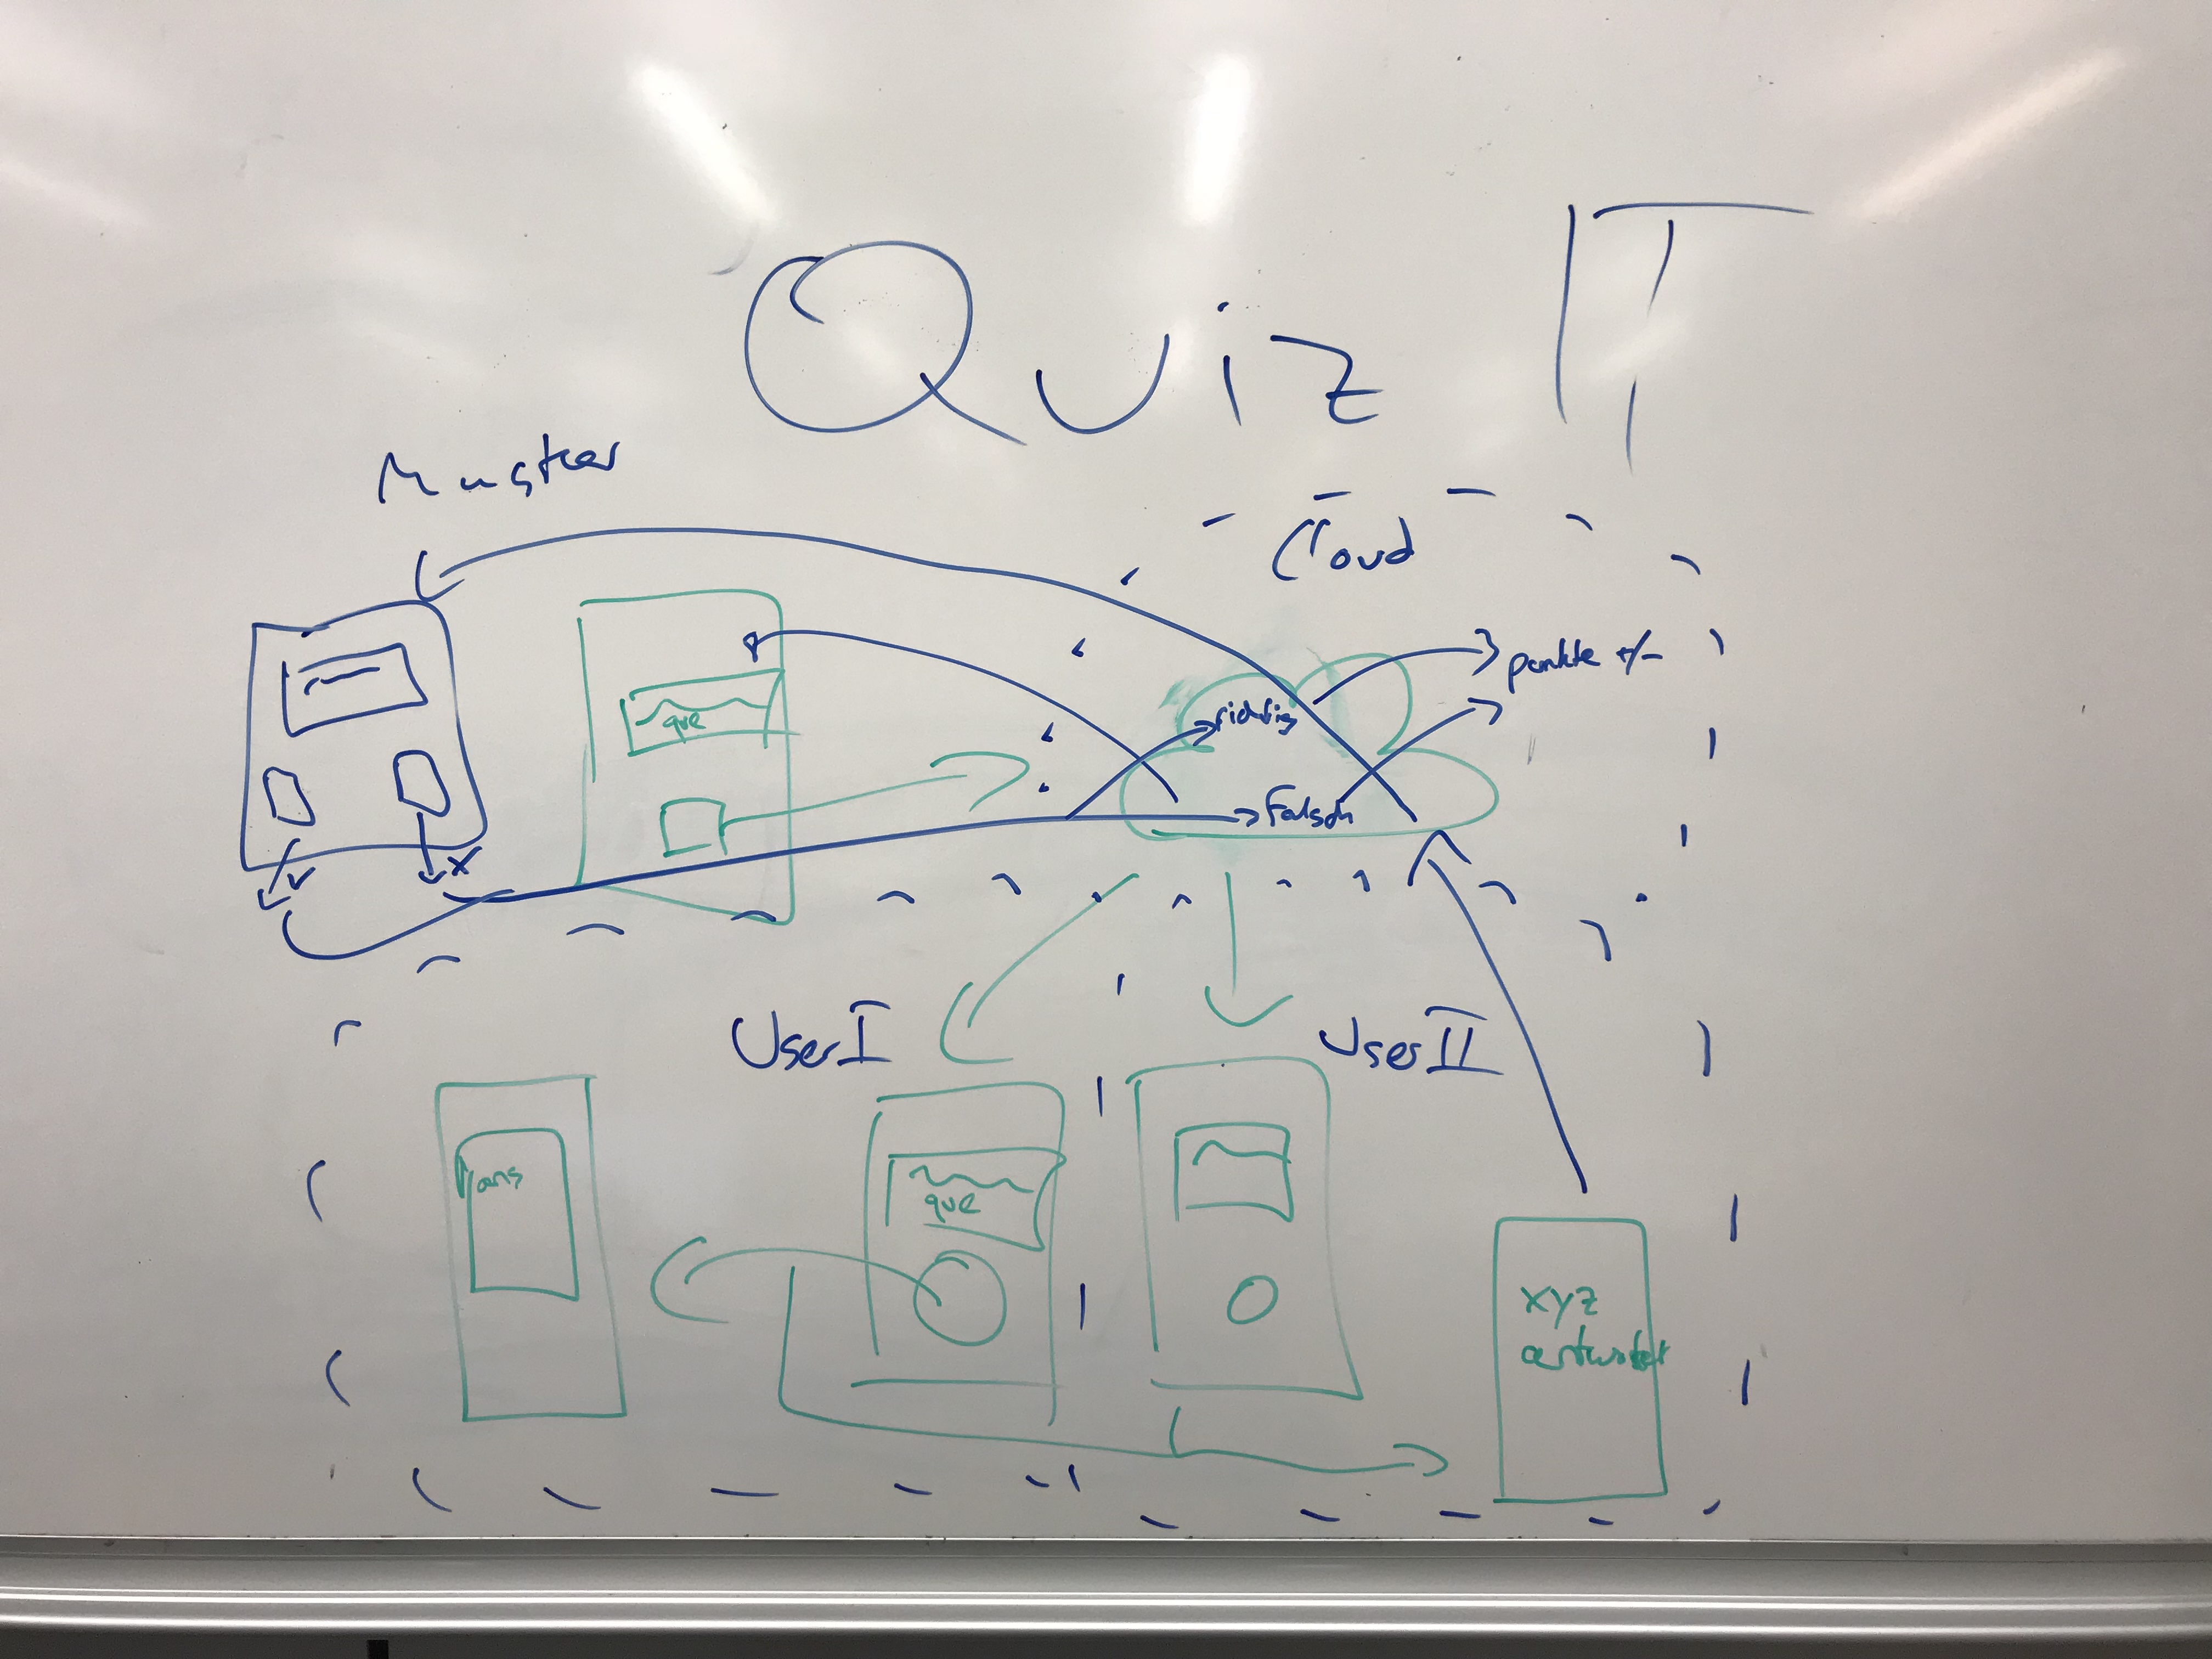 Quiz IT
Master
Cloud
punkte +/-
que
richtig
Falsch
✓
x
User I
User II
ans
que
xyz
antwortet